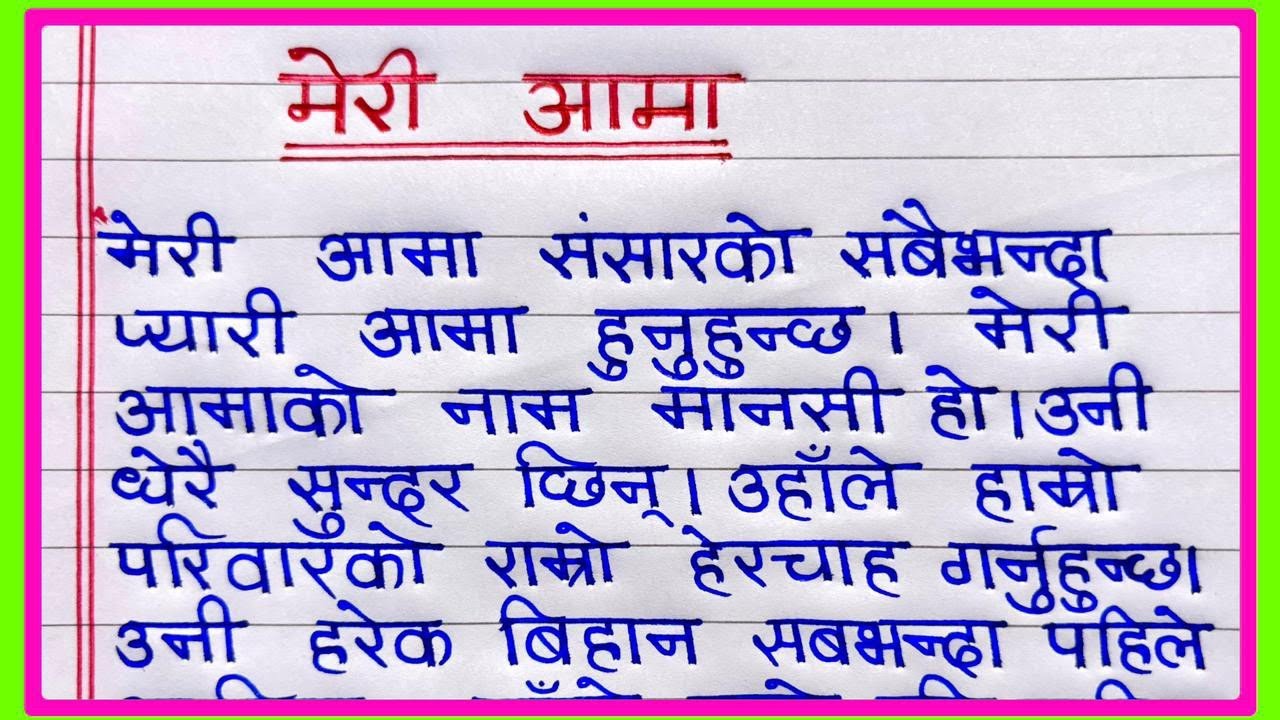 मेरी आमा
मेरी आमा संसारको सबैभन्दा
प्यारी आमा हुनुहुन्छ। मेरी
आमाको नाम मानसी हो। उनी
धेरै सुन्दर छिन्। उहाँले हाम्रो
परिवारको राम्रो हेरचाह गर्नुहुन्छ।
उनी हरेक बिहान सबभन्दा पहिले